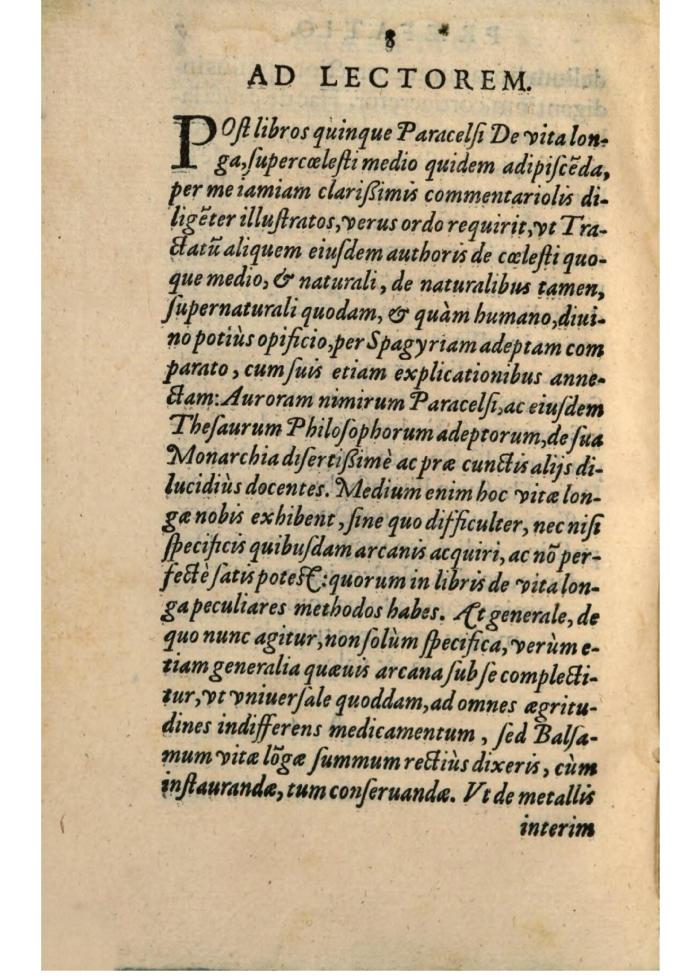 8
AD LECTOREM.
POſt libros quinque Paracelſi De vita lon-
ga, ſupercœleſti medio quidem adipiſcẽda,
per me iamiam clarißimis commentariolis di-
ligẽter illuſtratos, verus ordo requirit, vt Tra-
ctatũ aliquem eiuſdem authoris de cœleſti quo-
que medio, & naturali, de naturalibus tamen,
ſupernaturali quodam, & quàm humano, diui-
no potiùs opificio, per Spagyriam adeptam com
parato, cum ſuis etiam explicationibus anne-
ctam: Auroram nimirum Paracelſi, ac eiuſdem
Theſaurum Philoſophorum adeptorum, de ſua
Monarchia diſertißimè ac præ cunctis alijs di-
lucidiùs docentes. Medium enim hoc vitæ lon-
gæ nobis exhibent, ſine quo difficulter, nec niſi
ſpecificis quibuſdam arcanis acquiri, ac nõ per-
fectè ſatis poteſt: quorum in libris de vita lon-
ga peculiares methodos habes. Æt generale, de
quo nunc agitur, non ſolùm ſpecifica, verùm e-
tiam generalia quæuis arcana ſub ſe complecti-
tur, vt vniuerſale quoddam, ad omnes ægritu-
dines indifferens medicamentum, ſed Balſa-
mum vitæ lõgæ ſummum rectiùs dixeris, cùm
inſtaurandæ, tum conſeruandæ. Vt de metallis
interim